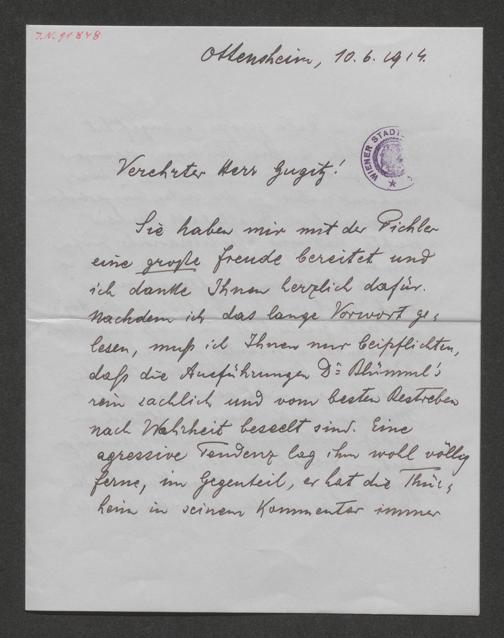 J.N. 91848
Ottensheim, 10. 6. 1914.
WIENER STADT
Verehrter Herr Gugitz!
Sie haben mir mit der Pichler
eine große Freude bereitet und
ich danke Ihnen herzlich dafür.
Nachdem ich das lange Vorwort ge-
lesen, muß ich Ihnen nur beipflichten,
daß die Ausführungen Dr Blümml's
rein sachlich und vom besten Bestreben
nach Wahrheit beseelt sind. Eine
agressive Tendenz lag ihm woll völlig
ferne, im Gegenteil, er hat die Thür-
heim in seinem Kommentar immer